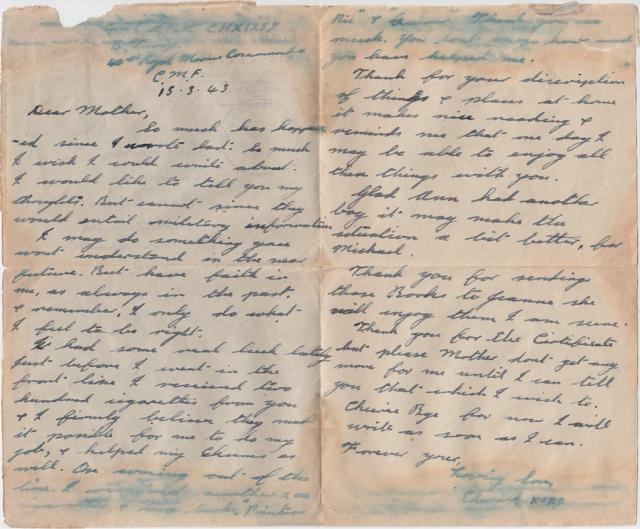 CHX1257
40th Royal Marine Commando
C.M.F.
15.3.43
Dear Mother,
So much has happen
-ed since I wrote last. So much
I wish I could write about.
I would like to tell you my
thoughts. But cannot since they
would entail military information
I may do something you
wont understand in the near
future. But have faith in
me, as always in the past,
& remember, I only do what
I feel to be right.
I had some real luck lately
Just before I went in the
front line I received two
hundred cigarettes from you
& I firmly believe they made
it posible for me to do my
job, & helped my Chums as
well. On coming out of the
line I received another 200
& two books,
Thank you so
much. You dont know how much
you have helped me.
Thank for your discription
of things & places at home
it makes nice reading &
reminds me that one day I
may be able to enjoy all
then things with you.
Glad Ann had another
boy it may make the
situation a bit better, for
Michael.
Thank you for sending
those Books to Jeanne she
will enjoy them I am sure.
Thank you for the Certificate
but please Mother dont get any
more for me until I can tell
you that which I wish to.
Cheerie Bye for now I will
write as soon as I can.
Forever your,
Loving Son,
Edward